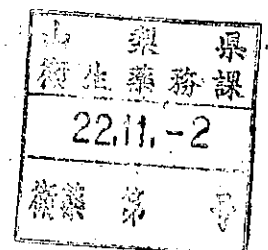 山梨県
衛生薬務課
22.11.-2
衛薬 第 号